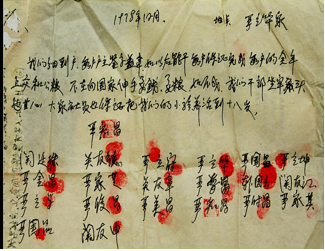 1978年12月. 地点 严立华家
我们分田到户 每户户主签字盖章 如以后能干 每户保证完成每户的全年
上交和公粮 不在向国家伸手要钱要粮 如不成 我们干部作牢杀头
也干心 大家社员也保证把我们的小孩养活到十八岁
严宏昌
关延珠 关友德 严立富 严立华 严国昌 严立坤
严金昌 严家芝 关友章 严学昌 韩国云 关友江
严立学 严俊昌 严美昌 严宏昌 严付昌 严家其
严国品 关友申